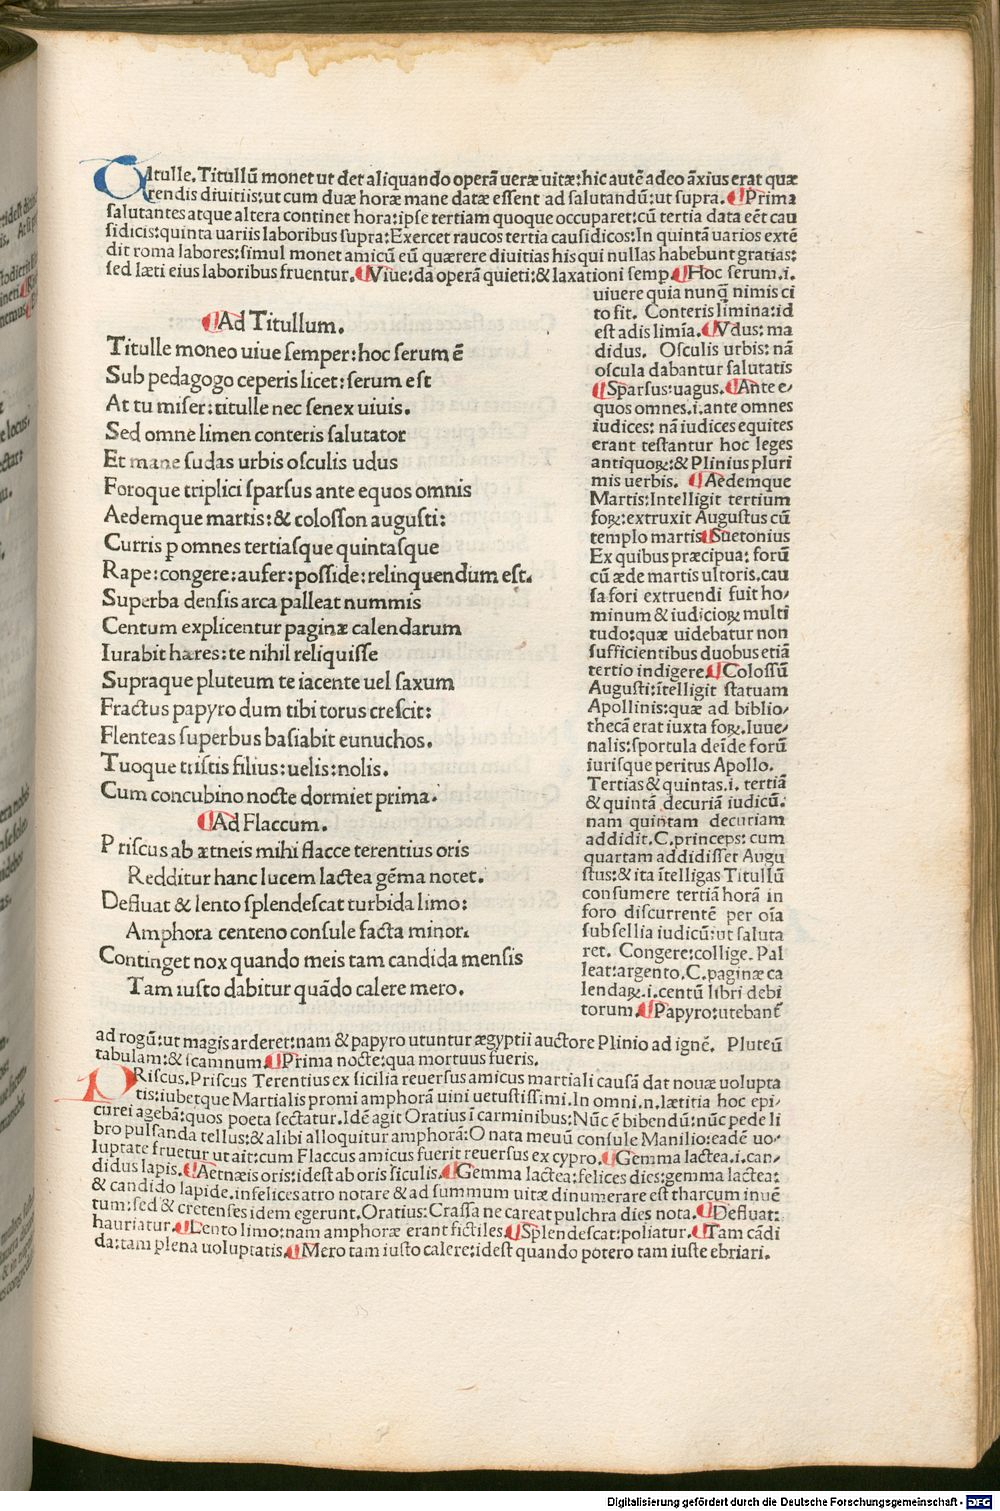 TItulle. Titullū monet ut det aliquando operā ueræ uitæ: hic autē adeo āxius erat quæ
rendis diuitiis: ut cum duæ horæ mane datæ essent ad salutandū: ut supra. ¶ Prima
salutantes atque altera continet hora: ipse tertiam quoque occuparet: cū tertia data eēt cau
sidicis: quinta uariis laboribus supra: Exercet raucos tertia causidicos: In quintā uarios extē
dit roma labores: simul monet amicū eū quærere diuitias his qui nullas habebunt gratias:
sed læti eius laboribus fruentur. ¶ Viue: da operā quieti: & laxationi semp. ¶ Hoc serum .i.
uiuere quia nunq̄ nimis ci
to fit. Conteris limina: id
est adis limīa. ¶ Vdus: ma
didus. Osculis urbis: nā
oscula dabantur salutatis
¶ Sparsus: uagus. ¶ Ante e/
quos omnes .i. ante omnes
iudices: nā iudices equites
erant testantur hoc leges
antiquoꝝ: & Plinius pluri
mis uerbis. ¶ Aedemque
Martis: Intelligit tertium
foꝝ: extruxit Augustus cū
templo martis ¶ Suetonius
Ex quibus præcipua: forū
cū æde martis ultoris. cau
sa fori extruendi fuit ho/
minum & iudicioꝝ multi
tudo: quæ uidebatur non
sufficientibus duobus etiā
tertio indigere. ¶ Colossū
Augusti: ītelligit statuam
Apollinis: quæ ad biblio/
thecā erat iuxta foꝝ. Iuue/
nalis: sportula deīde forū
iurisque peritus Apollo.
Tertias & quintas .i. tertiā
& quintā decuriā iudicū.
nam quintam decuriam
addidit. C. princeps: cum
quartam addidisset Augu
stus: & ita ītelligas Titullū
consumere tertiā horā in
foro discurrentē per oīa
subsellia iudicū: ut saluta
ret. Congere: collige. Pal
leat: argento. C. paginæ ca
lendaꝝ .i. centū libri debi
torum. ¶ Papyro: utebant̄
¶ Ad Titullum.
Titulle moneo uiue semper: hoc serum ē
Sub pedagogo ceperis licet: serum est
At tu miser: titulle nec senex uiuis.
Sed omne limen conteris salutator
Et mane sudas urbis osculis udus
Foroque triplici sparsus ante equos omnis
Aedemque martis: & colosson augusti:
Curris ꝑ omnes tertiasque quintasque
Rape: congere: aufer: posside: relinquendum est.
Superba densis arca palleat nummis
Centum explicentur paginæ calendarum
Iurabit hæres: te nihil reliquisse
Supraque pluteum te iacente uel saxum
Fractus papyro dum tibi torus crescit:
Flenteas superbus basiabit eunuchos.
Tuoque tristis filius: uelis: nolis.
Cum concubino nocte dormiet prima.
¶ Ad Flaccum.
Priscus ab ætneis mihi flacce terentius oris
Redditur hanc lucem lactea gēma notet.
Defluat & lento splendescat turbida limo:
Amphora centeno consule facta minor.
Continget nox quando meis tam candida mensis
Tam iusto dabitur quādo calere mero.
ad rogū: ut magis arderet: nam & papyro utuntur ægyptii auctore Plinio ad ignē. Pluteū
tabulam: & scamnum. ¶ Prima nocte: qua mortuus fueris.
PRiscus. Priscus Terentius ex sicilia reuersus amicus martiali causā dat nouæ uolupta
tis: iubetque Martialis promi amphorā uini uetustissimi. In omni .n. lætitia hoc epi/
curei agebā: quos poeta sectatur. Idē agit Oratius ī carminibus: Nūc ē bibendū: nūc pede li
bro pulsanda tellus: & alibi alloquitur amphorā: O nata meuū consule Manilio: eadē uo/
luptate fruetur ut ait: cum Flaccus amicus fuerit reuersus ex cypro. ¶ Gemma lactea .i. can/
didus lapis. ¶ Aetnæis oris: idest ab oris siculis. ¶ Gemma lactea: felices dies: gemma lactea:
& candido lapide. infelices atro notare & ad summum uitæ dinumerare est tharcum inuē
tum: sed & cretenses idem egerunt. Oratius: Crassa ne careat pulchra dies nota. ¶ Defluat:
hauriatur. ¶ Lento limo: nam amphoræ erant fictiles. ¶ Splendescat: poliatur. ¶ Tam cādi
da: tam plena uoluptatis. ¶ Mero tam iusto calere: idest quando potero tam iuste ebriari.
Digitalisierung gefördert durch die Deutsche Forschungsgemeinschaft - DFG